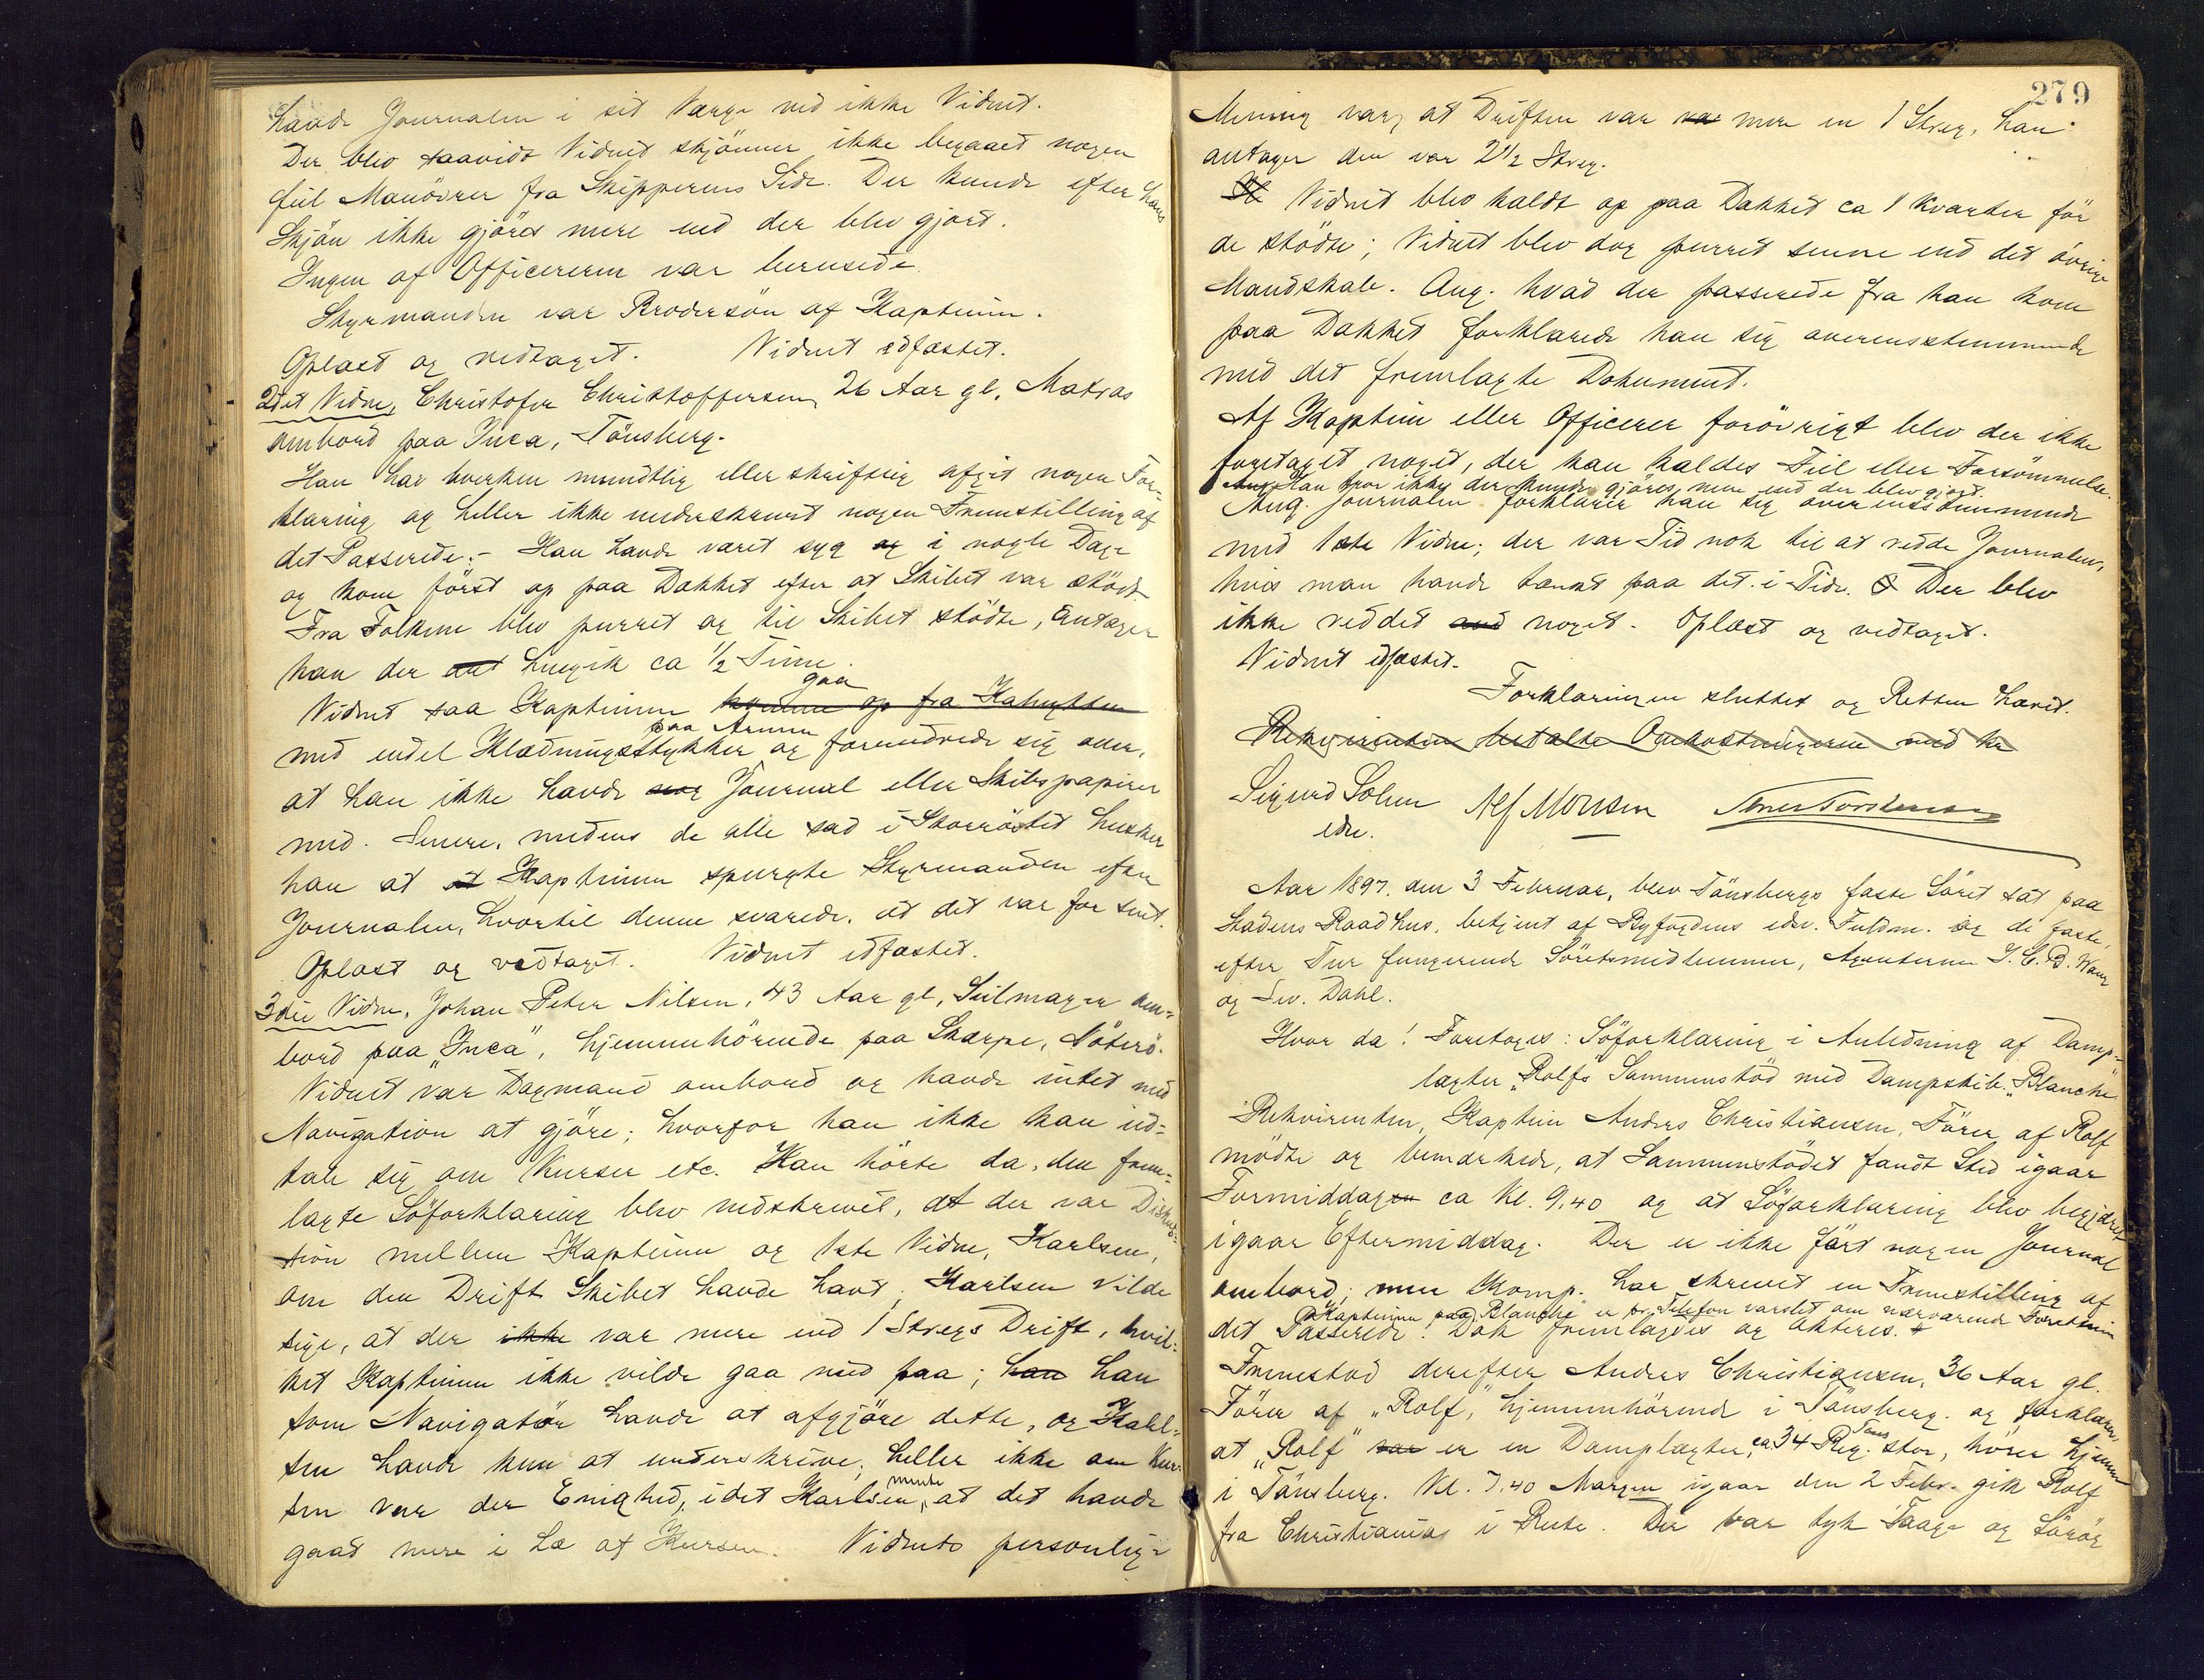 havde Journalen i sit Værge ved ikke Vidnet.
Der blev saavidt Vidnet skjönner ikke begaaet nogen
feil Manövrer fra Skipperens Side. Der kunde efter hans
Skjön ikke gjöres mere end der blev gjort.
Ingen af Officererne var berusede.
Styrmanden var Brodersön af Kapteinen.
Oplæst og vedtaget. Vidnet edfæstet.
2det Vidne, Christofer Christoffersen, 26 Aar gl, Matros
ombord paa Inca, Tönsberg.
Han har hverken mundtlig eller skriftlig afgit nogen For-
klaring og heller ikke underskrevet nogen Fremstilling af
det Passerede. - Han havde været syg og i nogle Dage
og kom först op paa Dækket efter at Skibet var stödt.
Fra Folkene blev purret og til Skibet stödte, antager
han der hengik ca 1/2 Time.
Vidnet saa Kapteinen komme op fra Kahytten gaa
med endel Klædningsstykker paa Armen og forundrede sig over,
at han ikke havde Journal eller Skibspapirer
med. Senere, medens de alle sad i Storröstet husker
han at Kapteinen spurgte Styrmanden efter
Journalen, hvortil denne svarede, at det var for sent.
Oplæst og vedtaget. Vidnet edfæstet.
3die Vidne, Johan Peter Nilsen, 43 Aar gl, Seilmager om-
bord paa "Inca", hjemmehörende paa Skarpe, Nöterö.
Vidnet var Dagmand ombord og havde intet med
Navigation at gjöre; hvorfor han ikke kan ud-
tale sig om Kurser etc. Han hörte da, den frem-
lagte Söforklaring blev nedskrevet, at der var Disku-
sion mellem Kapteinen og 1ste Vidne, Karlsen,
om den Drift Skibet havde havt; Karlsen vilde
sige, at der ikke var mere end 1 Stregs Drift, hvil-
ket Kapteinen ikke vilde gaa med paa; han han
som Navigatör havde at afgjöre dette, og Karl-
sen havde kun at underskrive; heller ikke om Kur-
sen var der Enighed, idet Karlsen mente, at det havde
gaat mere i Læ af Kursen. Vidnets personlige
279
Mening var, at Driften var var mere en 1 Streg, han
antager den var 2 1/2 Streg.
Vidnet blev kaldt op paa Dækket ca 1 Kvarter för
de stödte; Vidnet blev dog purret senere end det övrige
Mandskab. Ang. hvad der passerede fra han kom
paa Dækket forklarede han sig overensstemmende
med det fremlagte Dokument.
Af Kaptein eller Officerer forövrigt blev der ikke
foretaget noget, der kan kaldes Feil eller Forsömmelse.
Han tror ikke der kunde gjöres mere end der blev gjort.
Ang. Journalen forklarer han sig overensstemmende
med 1ste Vidne; der var Tid nok til at redde Journalen,
hvis man havde tænkt paa det i Tide. Der blev
ikke reddet noget. Oplæst og vedtaget.
Vidnet edfæstet.
Forklaringen sluttet og Retten hævet.
Rekvirenten betalte Omkostningerne med kr
Sigurd Solem Alf Monsen
edv.
Aar 1897, den 3 Februar, blev Tönsbergs faste Söret sat paa
Stadens Raadhus, betjent af Byfogdens edsv. Fuldm. og de faste,
efter Tur fungerende Söretsmedlemmer, Agenterne J. C. B. Wang
og Sev. Dahl.
Hvor da! Foretoges: Söforklaring i Anledning af Damp-
lægter "Rolfs" Sammenstöd med Dampskib "Blanche"
Rekvirenten, Kaptein Anders Christiansen, Förer af Rolf
mödte og bemærkede, at Sammenstödet fandt Sted igaar
Formiddag ca Kl. 9,40 og at Söforklaring blev begjæret
igaar Eftermiddag. Der er ikke fört nogen Journal
ombord; men Komp. har skrevet en Fremstilling af
Kapteinen paa "Blanche" er pr. Telefon varslet om nærværende Forretning
det Passerede. Dok fremlagdes og akteres.
Fremstod derefter Anders Christiansen, 36 Aar gl.
Förer af "Rolf", hjemmehörende i Tönsberg og forklarer,
at "Rolf" var er en Damplægter, ca 34 Reg. Tons stor, hörer hjemme
i Tönsberg. Kl. 7,40 Morgen igaar den 2 Febr. gik Rolf
fra Christiania i Rute. Der var tyk Taage og Sörög